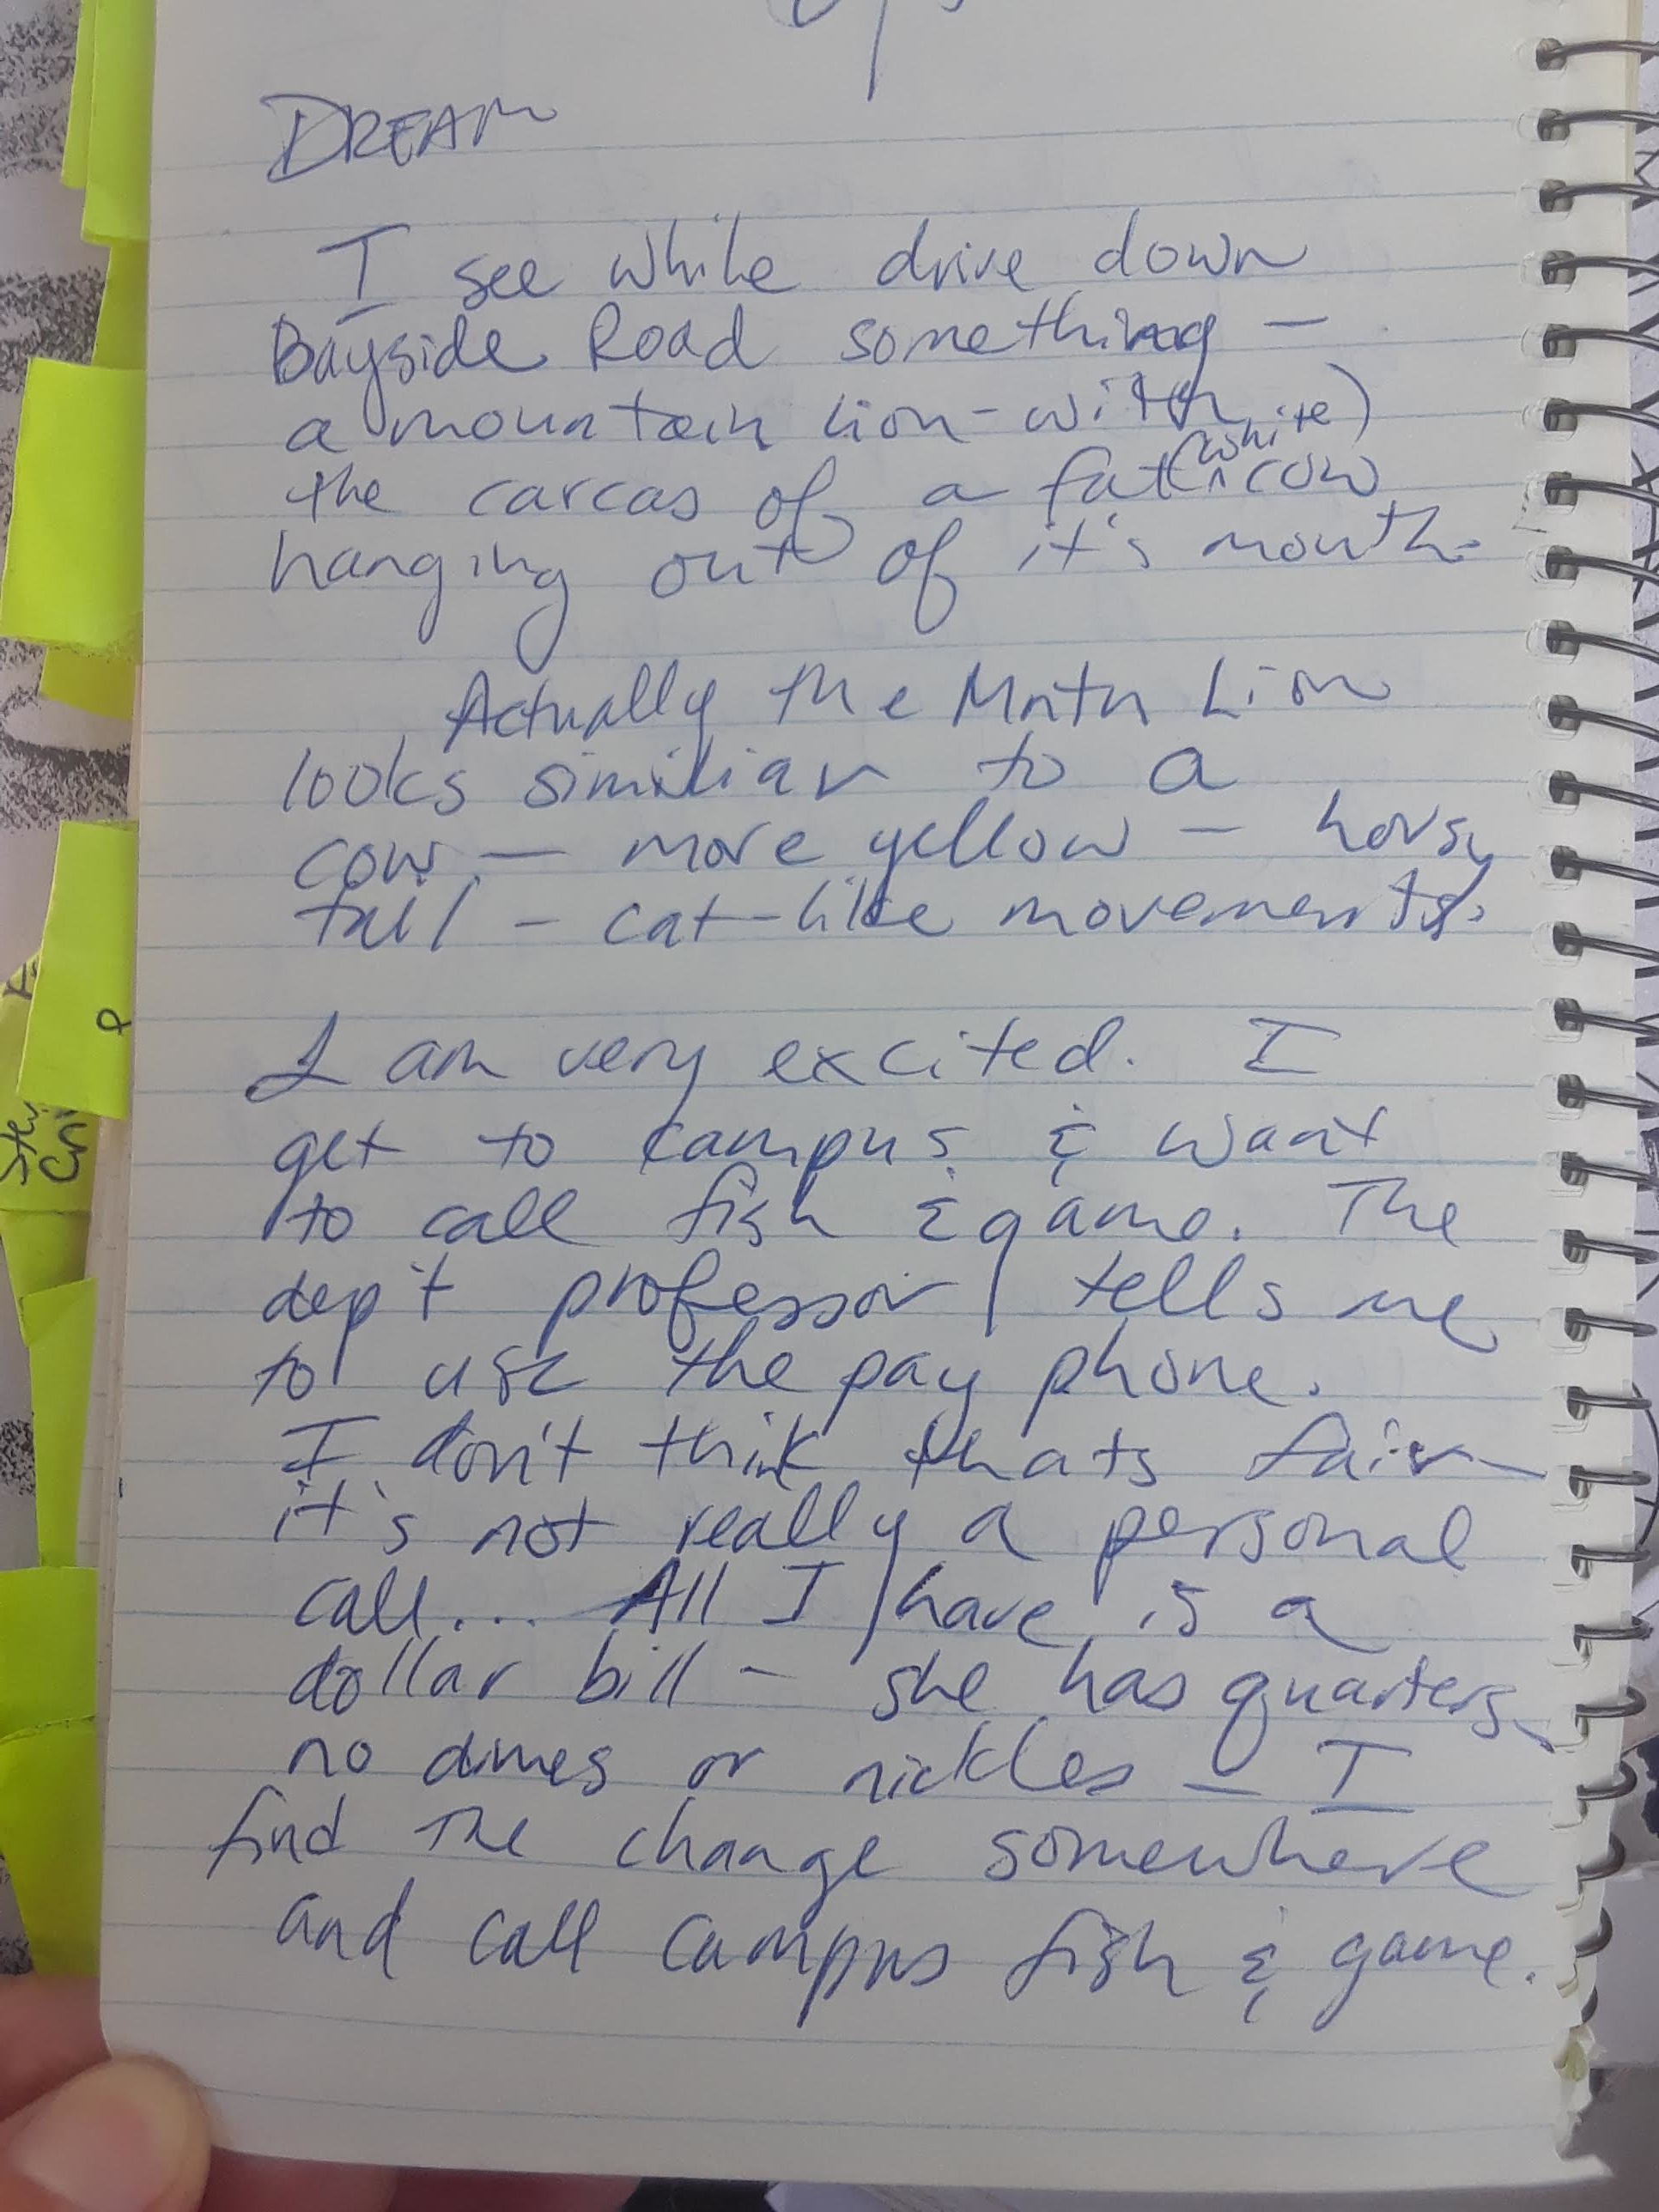 DREAM
I see while drive down
Bayside Road something –
a mountain lion - with
the carcas of a fat (white) cow
hanging out of it's mouth.
Actually the Mntn Lion
looks similiar to a
cow – more yellow – horsy
tail – cat-like movements.
I am very excited. I
get to campus & want
to call fish & game. The
dep't professor tells me
to use the pay phone.
I don't think thats fair –
it's not really a personal
call... All I have is a
dollar bill – she has quarters
no dimes or nickles – I
find the change somewhere
and call campus fish & game.